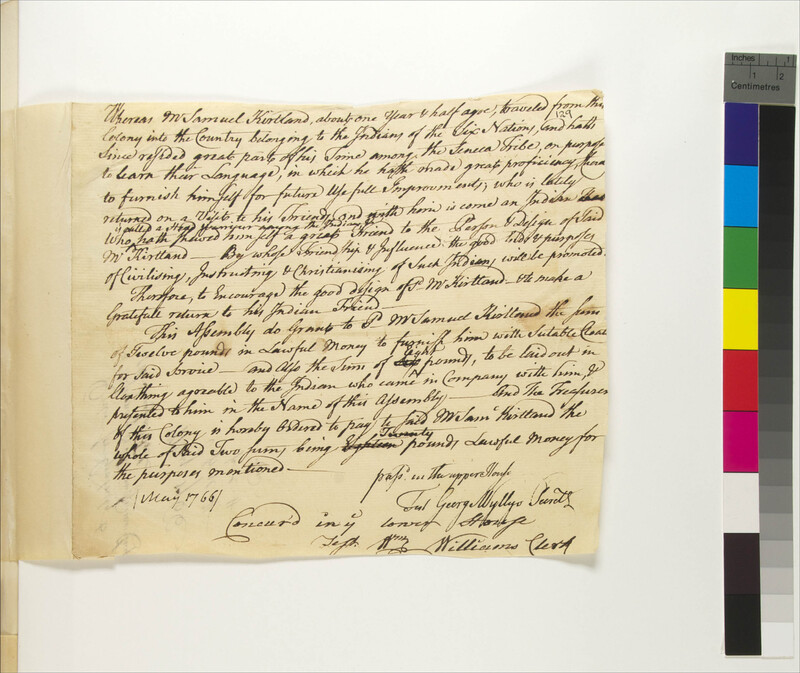 Inches 1
1 2
Centimetres
Whereas Mr Samuel Kirtland, about one Year & half agoe, traveled from this
129
Colony into the Country belonging to the Indians of the Six Nations, and hath
Since resided great part of his Time among the Seneca Tribe, on purpose
to learn their Language, in which he hath made great proficiency,
to furnish himself for future Usefull Improvments; who is lately
returned on a Visit to his Friends, and with him is come an Indian
is called a Head Warriour among the Indians &
Who hath shewed himself a great Friend to the Person & Design of Said
Mr Kirtland — By whose Friendship & Influence the good Ends & purposes
of Civilising, Instructing & Christianising of Such Indians, will be promoted.
Therefore, to Encourage the good design of Sd Mr Kirtland — & to make a
Gratefull return to his Indian Friend —
This Assembly do Grant to Sd Mr Samuel Kirtland the sum
of Twelve pounds in Lawful Money to furnish him with Sutable
for Said Service — and Also the Sum of Eight pounds, to be laid out in
Cloathing agreable to the Indian who came in Company with him, &
presented to him in the Name of this Assembly — And The Treasurer
of this Colony is hereby Ordered to pay to Said Mr Saml Kirtland the
whole of Said Two sums being Eighteen Twenty pounds Lawful Money for
the purposes mentioned —
pass'd in the upper House
[May 1766]
Test George Wyllys Secrety
Concurr'd in ye Lower House
Test Wm Williams Clerk